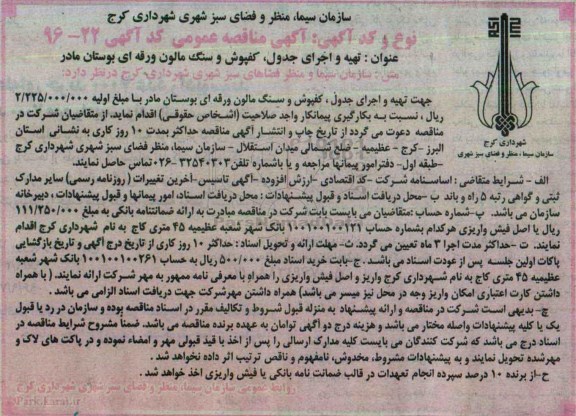 سازمان سیما، منظر و فضای سبز شهری شهرداری کرج
نوع و کد آگهی: آگهی مناقصه عمومی کد آگهی ۲۲- ۹۶
عنوان : تهیه و اجرای جدول، کفپوش و سنگ مالون ورقه ای بوستان مادر
متن : سازمان سیما و منظر فضاهای سبز شهری شهرداری کرج درنظر دارد:
شهرداری کرج
سازمان سیما، منظر و فضای سبز شهری
جهت تهیه و اجرای جدول ، کفپوش و سنگ مالون ورقه ای بوستان مادر با مبلغ اولیه ۲/۲۲۵/۰۰۰/۰۰۰
ریال ، نسبت به بکارگیری پیمانکار واجد صلاحیت (اشخاص حقوقی) اقدام نماید. از متقاضیان شرکت در
مناقصه دعوت می گردد از تاریخ چاپ و انتشار آگهی مناقصه حداکثر بمدت ۱۰ روز کاری به نشانی استان
البرز - کرج - عظیمیه - ضلع شمالی میدان استقلال - سازمان سیما، منظر فضای سبز شهری شهرداری کرج
-طبقه اول- دفترامور پیمانها مراجعه و یا باشماره تلفن۳۲۵۴۰۳۰۳-۰۲۶تماس حاصل نمایند.
الف - شرایط متقاضی : اساسنامه شرکت -کد اقتصادی -ارزش افزوده -آگهی تاسیس-آخرین تغییرات ( روزنامه رسمی) سایر مدارک
ثبتی و گواهی رتبه ۵ راه و باند ب -محل دریافت اسناد و قبول پیشنهادات : محل دریافت اسناد، امور پیمانها و قبول پیشنهادات ، دبیرخانه
سازمان می باشد. پ-شماره حساب :متقاضیان می بایست بابت شرکت در مناقصه مبادرت به ارائه ضمانتنامه بانکی به مبلغ ۱۱۱/۲۵۰/۰۰۰
ریال یا اصل فیش واریزی هرکدام بشماره حساب ۱۰۰۱۰۰۱۰۰۱۲۱ بانک شهر شعبه عظیمیه ۴۵ متری کاج به نام شهرداری کرج اقدام
نمایند. ت -حداکثر مدت اجرا ۳ ماه تعیین می گردد. ث- مهلت ارائه و تحویل اسناد : حداکثر ۱۰ روز کاری از تاریخ درج آگهی و تاریخ بازگشایی
پاکات اولین جلسه پس از عودت اسناد می باشد. ج -بابت خرید اسناد مبلغ ۵۰۰/۰۰۰ ریال به حساب ۱۰۰۱۰۰۱۰۰۲۶۱ بانک شهر شعبه
عظیمیه ۴۵ متری کاج به نام شهرداری کرج واریز و اصل فیش واریزی را همراه با معرفی نامه ممهور به مهر شرکت ارائه نمایند. ( با همراه
داشتن کارت اعتباری امکان واریز وجه در محل نیز میسر می باشد) همراه داشتن مهرشرکت جهت دریافت اسناد الزامی می باشد .
چ-بدیهی است شرکت در مناقصه و ارائه پیشنهاد به منزله قبول شروط و تکالیف مقرر در اسناد مناقصه بوده و سازمان در رد یا قبول
یک یا کلیه پیشنهادات واصله مختار می باشد و هزینه درج دو آگهی توامان به عهده برنده مناقصه می باشد. ضمناً مشروح شرایط مناقصه در
اسناد درج می باشد که شرکت کنندگان می بایست کلیه مدارک ارسالی را پس از اخذ با قید قبولی مهر و امضاء نموده و در پاکت های لاک و
مهرشده تحویل نمایند و به پیشنهادات مشروط، مخدوش، نامفهوم و ناقص ترتیب اثر داده نخواهد شد .
ح-از برنده ۱۰ درصد سپرده انجام تعهدات در قالب ضمانت نامه بانکی یا فیش واریزی اخذ خواهد شد .
روابط عمومی سازمان سیما، منظر و فضای سبز شهری شهرداری کرج
Park.Karaj.ir